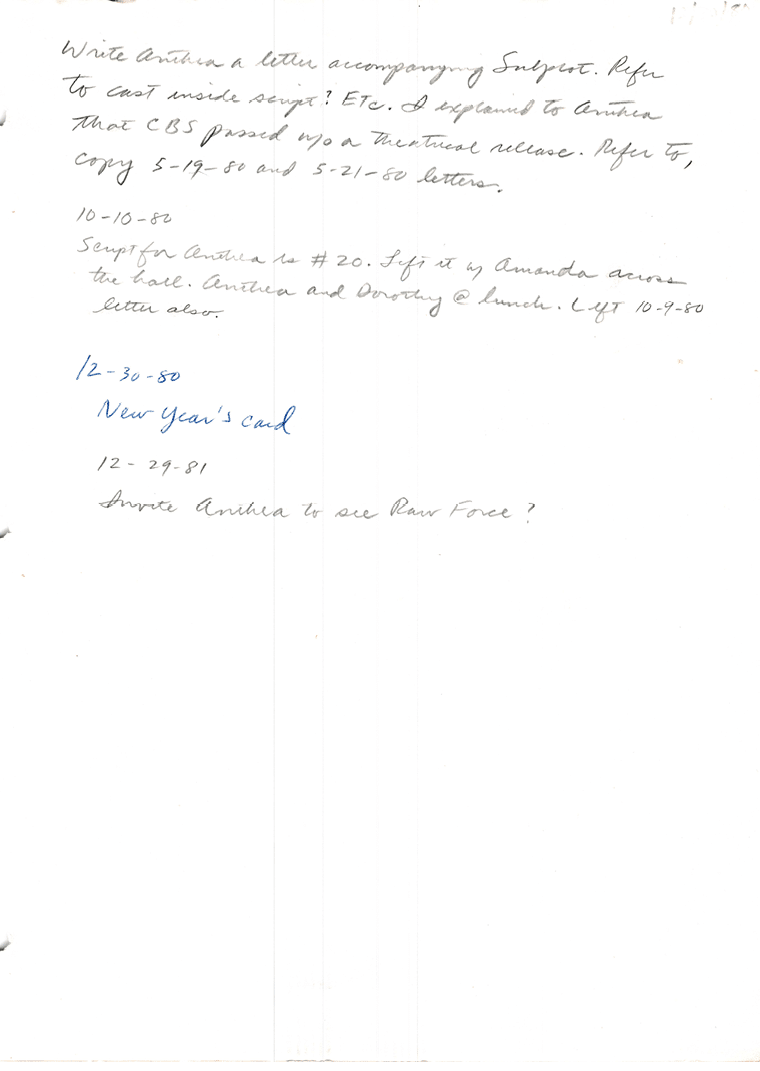 Write Anthea a letter accompanying Subplot. Refer
to cast inside script? ETC. I explained to Anthea
that CBS passed w/o a theatrical release. Refer to,
copy 5-19-80 and 5-21-80 letters.
10-10-80
Script for Anthea is #20. Left it w/ Amanda across
the hall. Anthea and Dorothy @ lunch. Left 10-9-80
letter also.
12-30-80
New Year's card
12-29-81
Invite Anthea to see Raw Force?